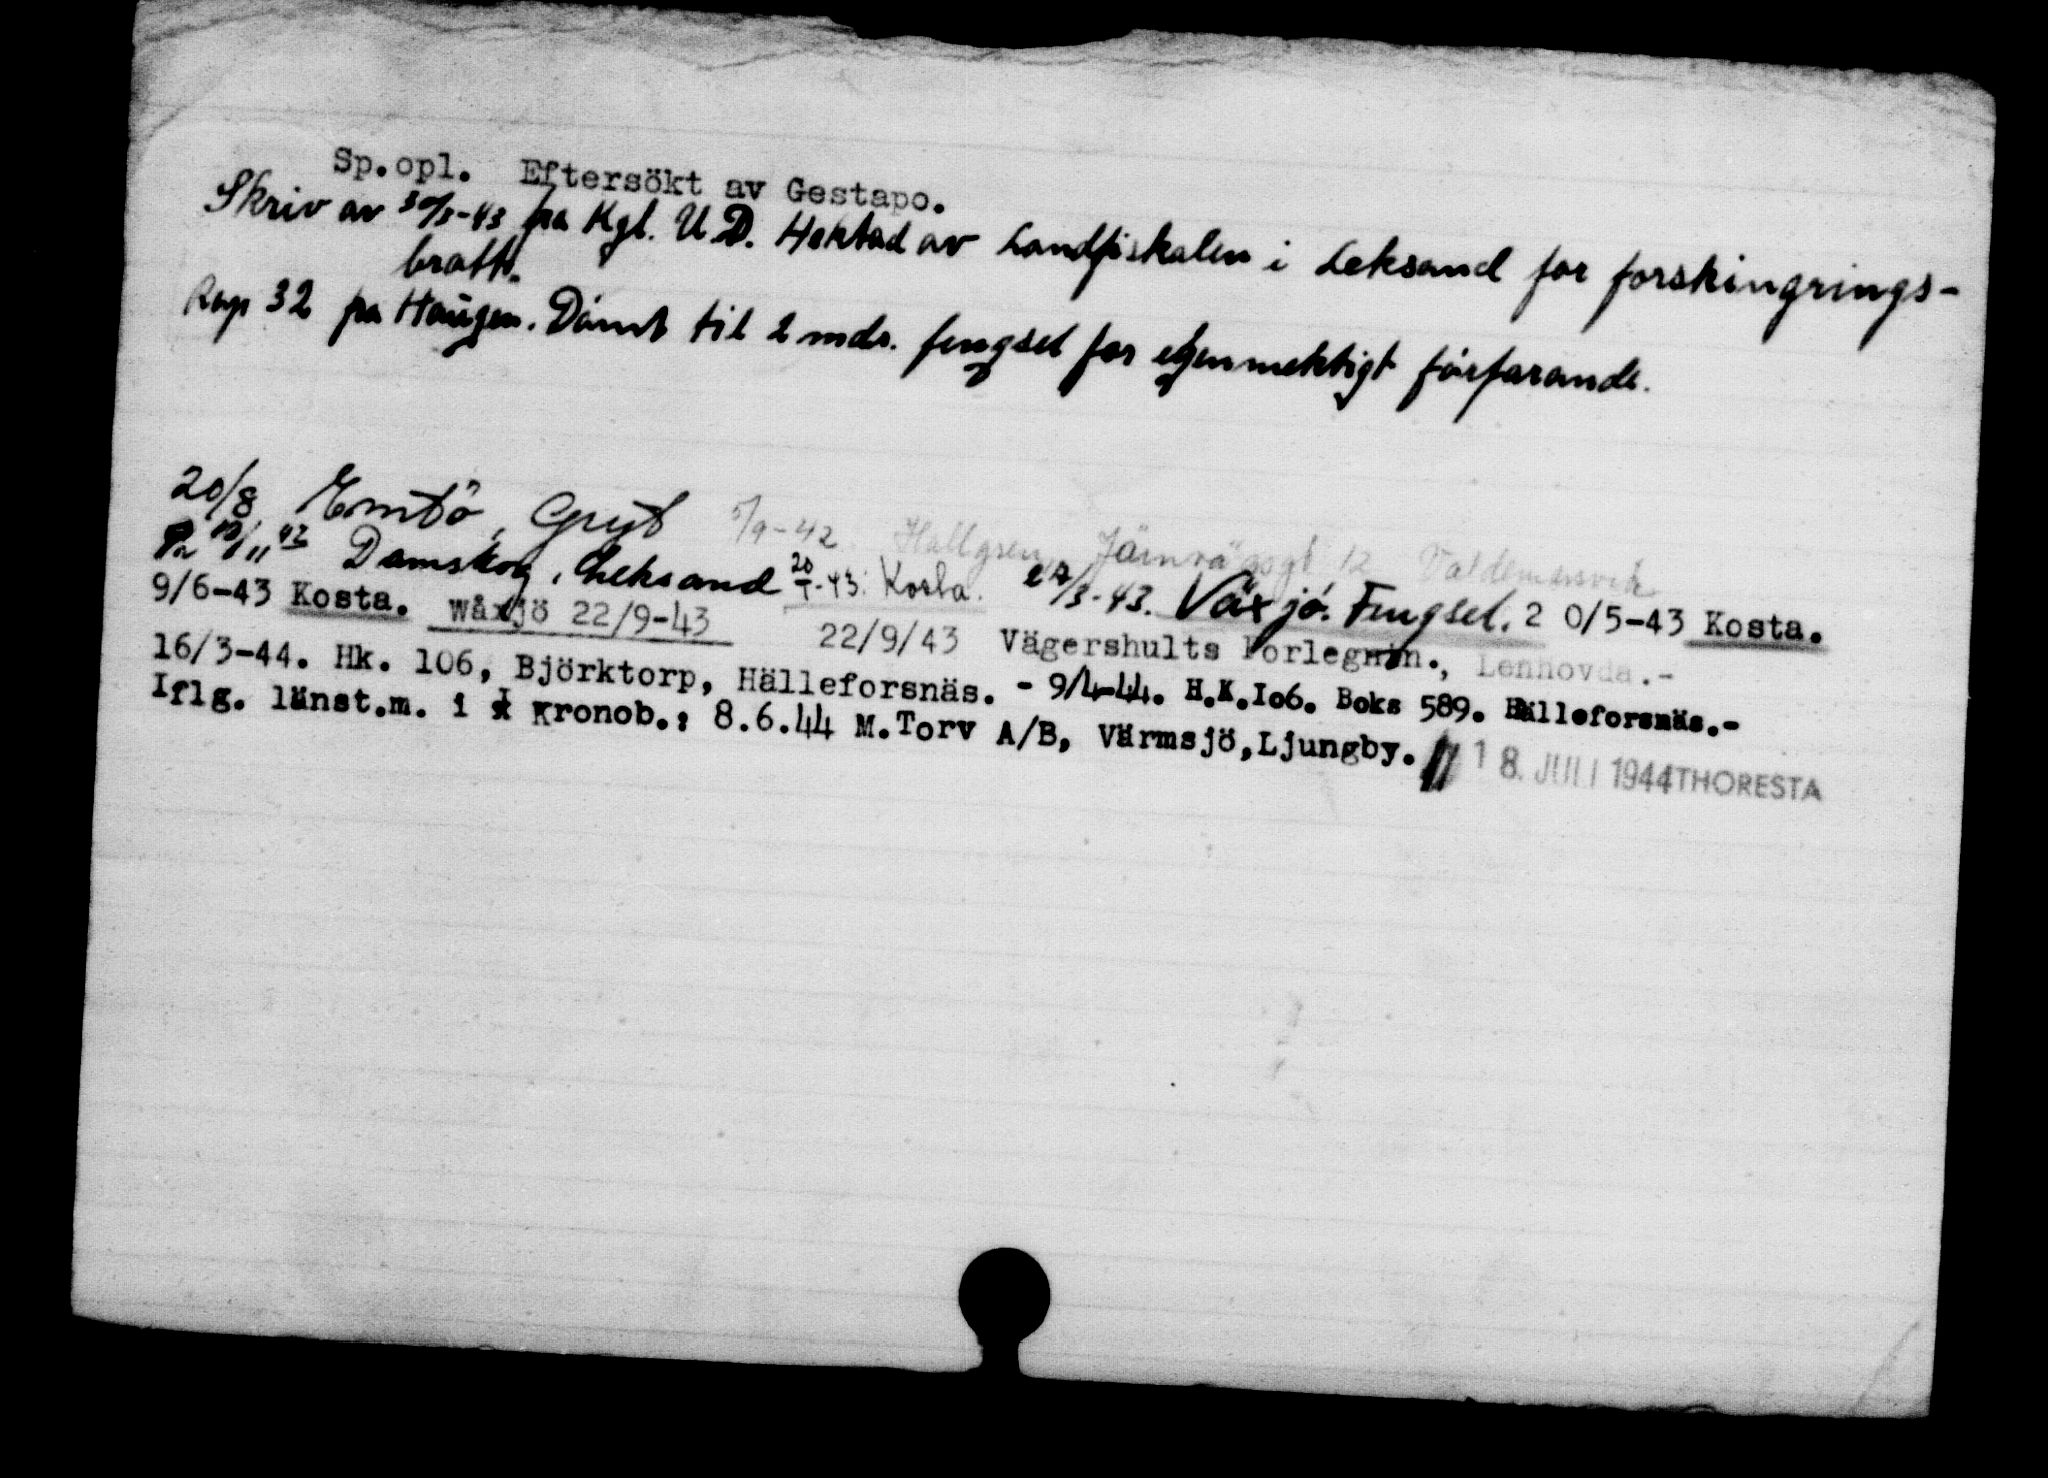 Sp.opl. Eftersökt av Gestapo.
Skriv av 30/3-43 fra Kgl. U.D. Hektad av Landfiskalen i Leksand for forskingrings-
brott.
Rap 32 fra Haugen. Dömt til 2 mdr. fengsel for egenmektigt förfarande.
20/8 Emtö, Gryt 5/9-42 Hallgren Järnvägsgt 12 Valdemarsvik
Pr 10/11 42 Damskog, Leksand 20/1-43: Kosta. 27/3-43. Växjö. Fengsel. 2 0/5-43 Kosta.
9/6-43 Kosta. Wåxjö 22/9-43 22/9/43 Vägershults Forlegnin., Lenhovda.-
16/3-44. Hk. 106, Björktorp, Hälleforsnäs. - 9/4-44. H.K.Io6. Boks 589. Hälleforsnäs.-
Iflg. länst.m. i Kronob.: 8.6.44 M.Torv A/B, Värmsjö,Ljungby. 18. JULI 1944 THORESTA